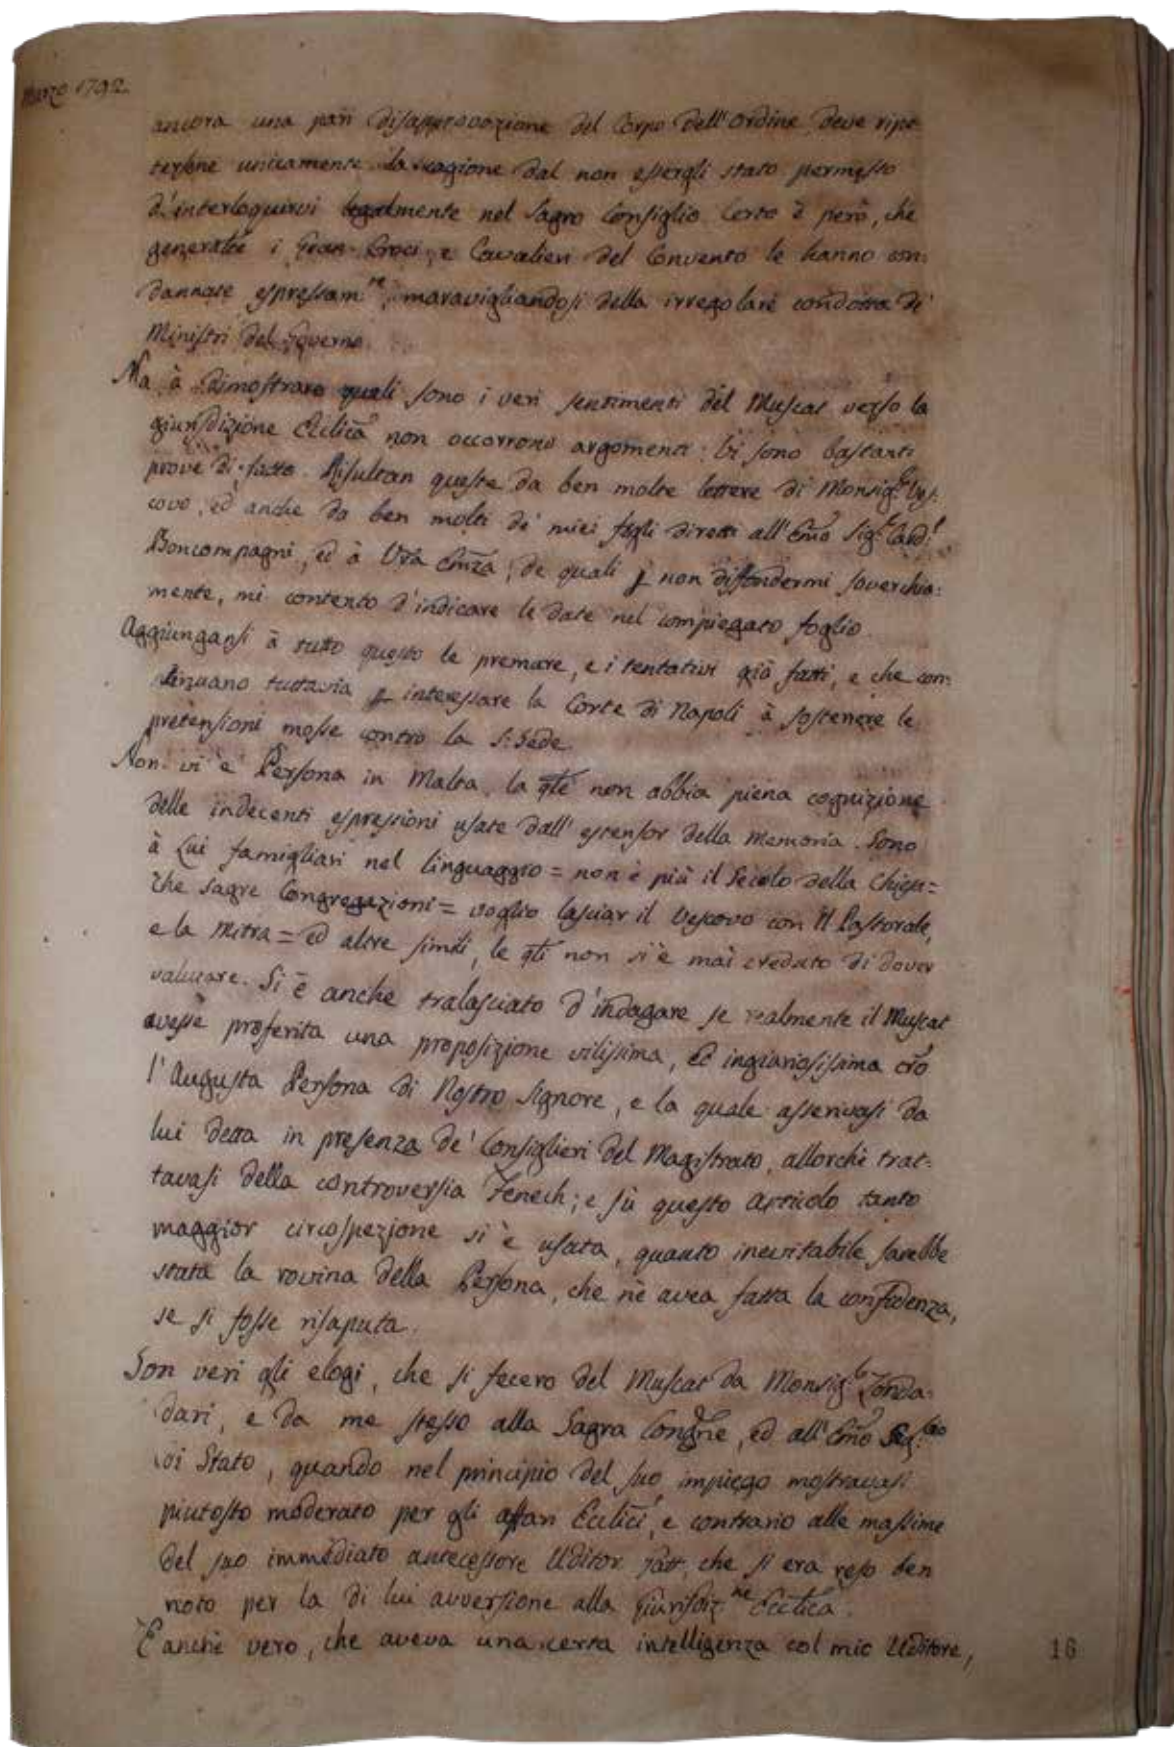 Marzo 1792
ancora una pari disapprovazione del Corpo dell'ordine deve ripe
tersene unicamente la cagione dal non essergli stato permesso
d'interloquirvi legalmente nel Sagro Consiglio. Certo è però, che
generalm̃e i Gran-Croci, e Cavalieri del Convento le hanno con:
dannate espressam.te, maravigliandosi della irregolare condotta de'
Ministri del Governo.
Ma à dimostrare quali sono i veri sentimenti del Muscat verso la
giurisdizione Ecclica non occorrono argomenti: Vi sono bastanti
prove di fatto. Risultan queste da ben molte lettere di Monsig.r Ves:
covo, ed anche da ben molti de' miei fogli diretti all'Em̃o Sig.r Card.l
Boncompagni, ed à Vr̃a Em̃za, de quali ꝑ non diffondermi soverchia:
mente, mi contento d'indicare le date nel compiegato foglio.
Aggiungansi à tutto questo le premure, e i tentativi già fatti, e che con:
tinuano tuttavia ꝑ interessare la Corte di Napoli à sostenere le
pretensioni mosse contro la S. Sede.
Non vi è Persona in Malta, la qle non abbia piena cognizione
delle indecenti espressioni usate dall'estensor della Memoria. Sono
à Lui famigliari nel linguaggio = non è più il Secolo della Chiesa =
che Sagre Congregazioni = voglio lasciar il Vescovo con il Pastorale,
e la Mitra = ed altre simili, le qli non si è mai creduto di dover
valutare. Si è anche tralasciato d'indagare se realmente il Muscat
avesse proferita una proposizione vilissima, ed ingiuriosissima cr̃o
l'Augusta Persona di Nostro Signore, e la quale asserivasi da
lui detta in presenza de' Consiglieri del Magistrato, allorchè trat:
tavasi della controversia Fenech; e sù questo Articolo tanto
maggior circospezione si è usata, quanto inevitabile sarebbe
stata la rovina della Persona, che nè avea fatta la confidenza,
se si fosse risaputa.
Son veri gli elogi, che si fecero del Muscat da Monsig.r Zonda:
dari, e da me stesso alla Sagra Congñe, ed all'Em̃o Seg.rio
di Stato, quando nel principio del suo impiego mostravasi
piutosto moderato per gli affari Ecclici, e contrario alle massime
del suo immediato antecessore Uditor che si era reso ben
noto per la di lui avversione alla Giurisdiz.ne Ecclica.
È anche vero, che aveva una certa intelligenza col mio Uditore,
16